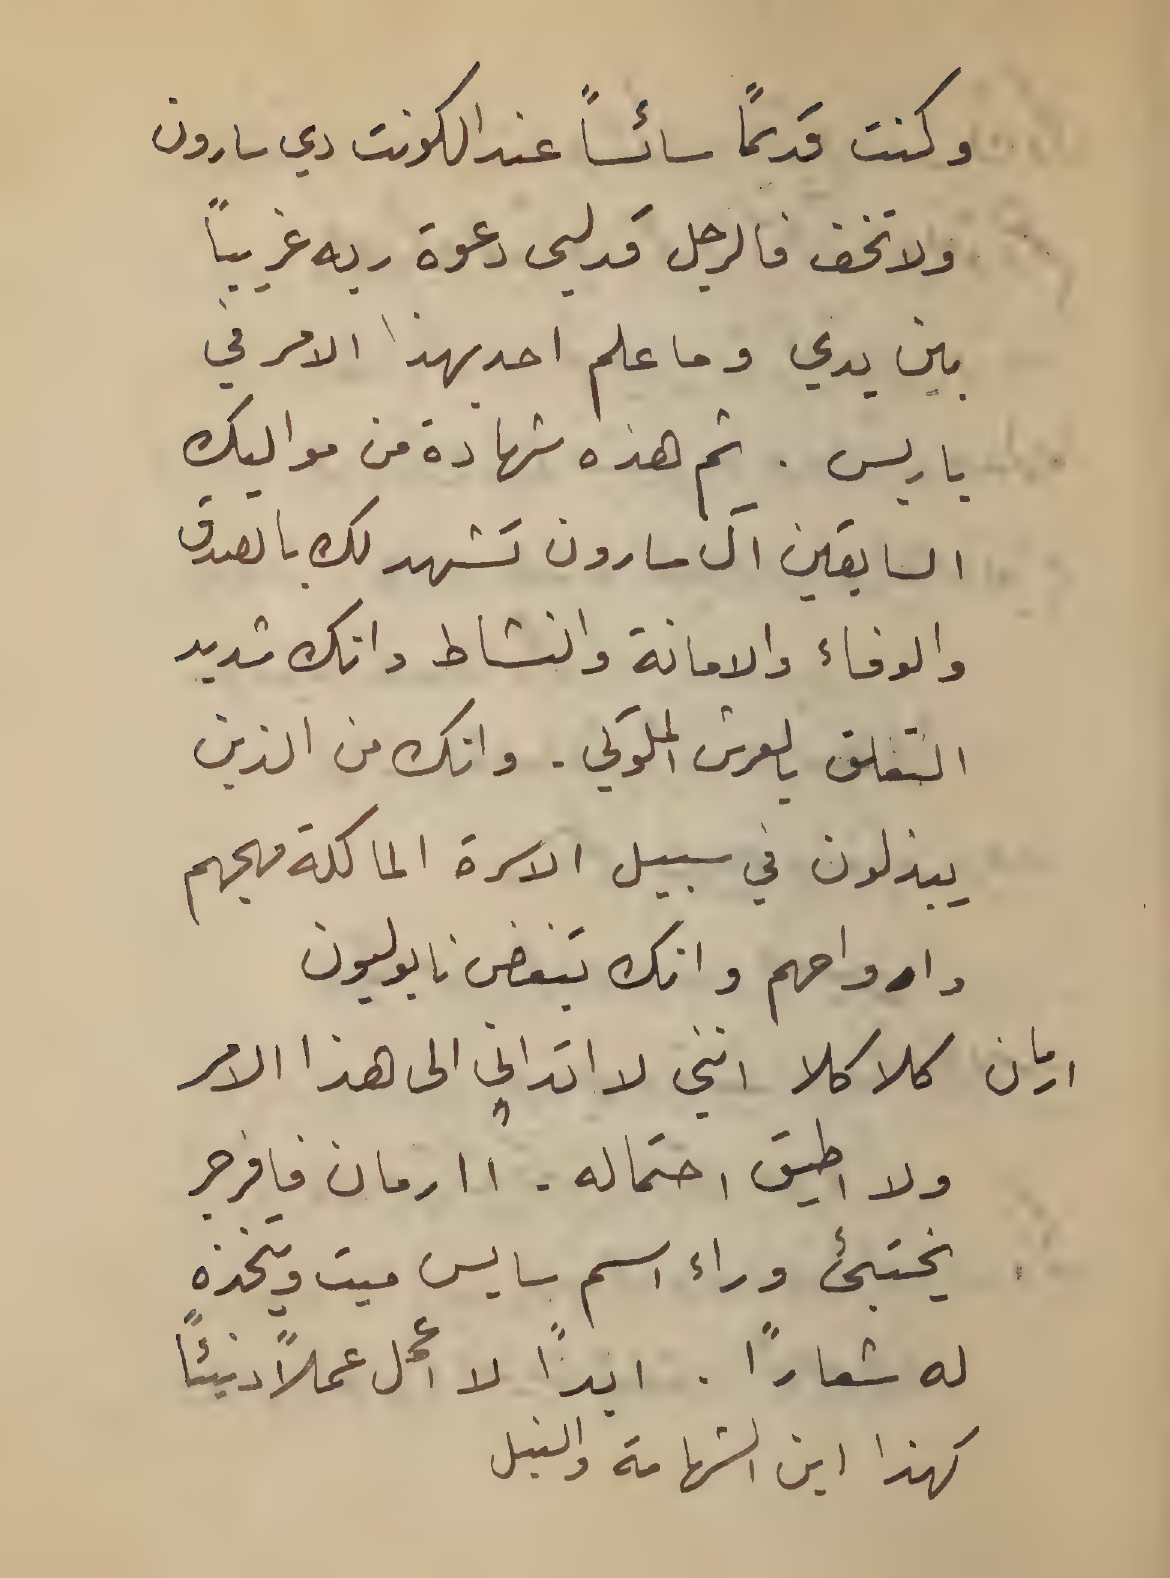 وكنت قديمًا سائساً عند الكونت دي سارون
ولا تخف فالرجل قد لبى دعوة ربه غريباً
بين يدي وما علم احد بهذا الامر في
باريس . ثم هذه شهادة من مواليك
السابقين آل سارون تشهد لك بالصدق
والوفاء والامانة والنشاط وانك شديد
التعلق بالعرش الملوكي . وانك من الذين
يبذلون في سبيل الاسرة المالكة مهجهم
وارواحهم وانك تبغض نابوليون
ارمان كلا كلا انني لا اتدانى الى هذا الامر
ولا اطيق احتماله . أ ارمان فافرجر
يختبئ وراء اسم سايس ميت ويتخذه
له شعارًا . ابدًا لا اعمل عملاً دنيئًا
كهذا اين الشهامة والنبل